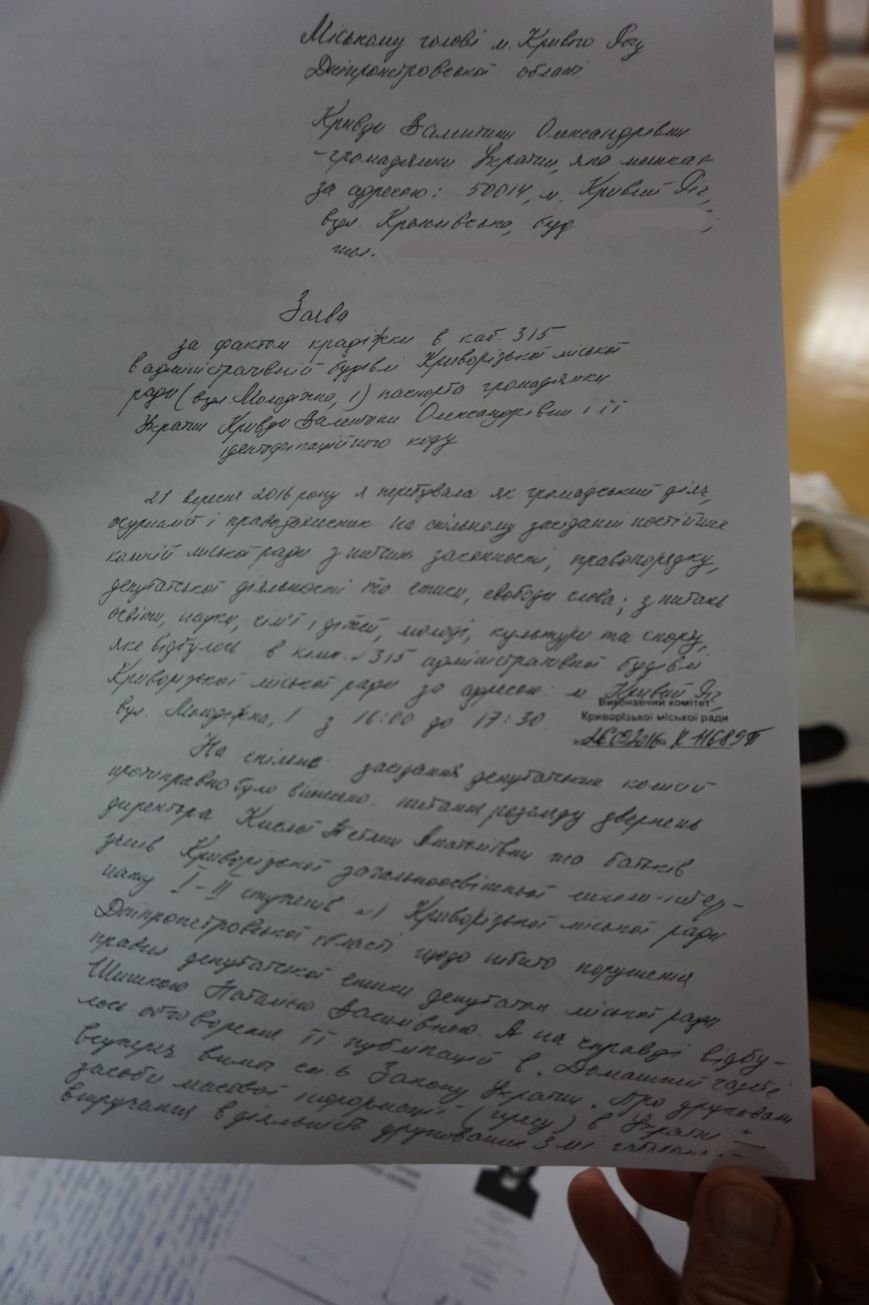 Міському голові м. Кривого Рогу
Дніпропетровської області
Кривди Валентини Олександрівни
- громадянки України, яка мешкає
за адресою: 50014, м. Кривий Ріг,
вул. буд ;
Заява
за фактом крадіжки в каб. 315
в адміністративній будівлі Криворізької міської
ради (вул. Молодіжна, 1) паспорта громадянки
України Кривди Валентини Олександрівни і її
ідентифікаційного коду
21 вересня 2016 року я перебувала як громадський діяч,
журналіст і правозахисник на спільному засіданні постійних
комісій міської ради з питань законності, правопорядку,
депутатської діяльності та етики, свободи слова; з питань
освіти, науки, сім'ї і дітей, молоді, культури та спорту,
яке відбулось в кімн. № 315 адміністративної будівлі
Криворізької міської ради за адресою: м. Кривий Ріг,
вул. Молодіжна, 1 з 16:00 до 17:30.
Виконавчий комітет
Криворізької міської ради
26.09.2016
На спільне засідання депутатських комісій
протиправно було винесено питання розгляду звернень
директора Кислої Анатоліївни та батьків
учнів Криворізької загальноосвітньої школи-інтер-
нату I-II ступенів №1 Криворізької міської ради
Дніпропетровської області щодо нібито порушення
правил депутатської етики депутатом міської ради
Шишкою Наталією Василівною. А на справді відбу-
лось обговорення її публікацій в "Домашній газеті
всупереч вимог ст. 6 Закону України "Про друковані
засоби масової інформації (пресу) в Україні
втручання в діяльність друкованих ЗМІ